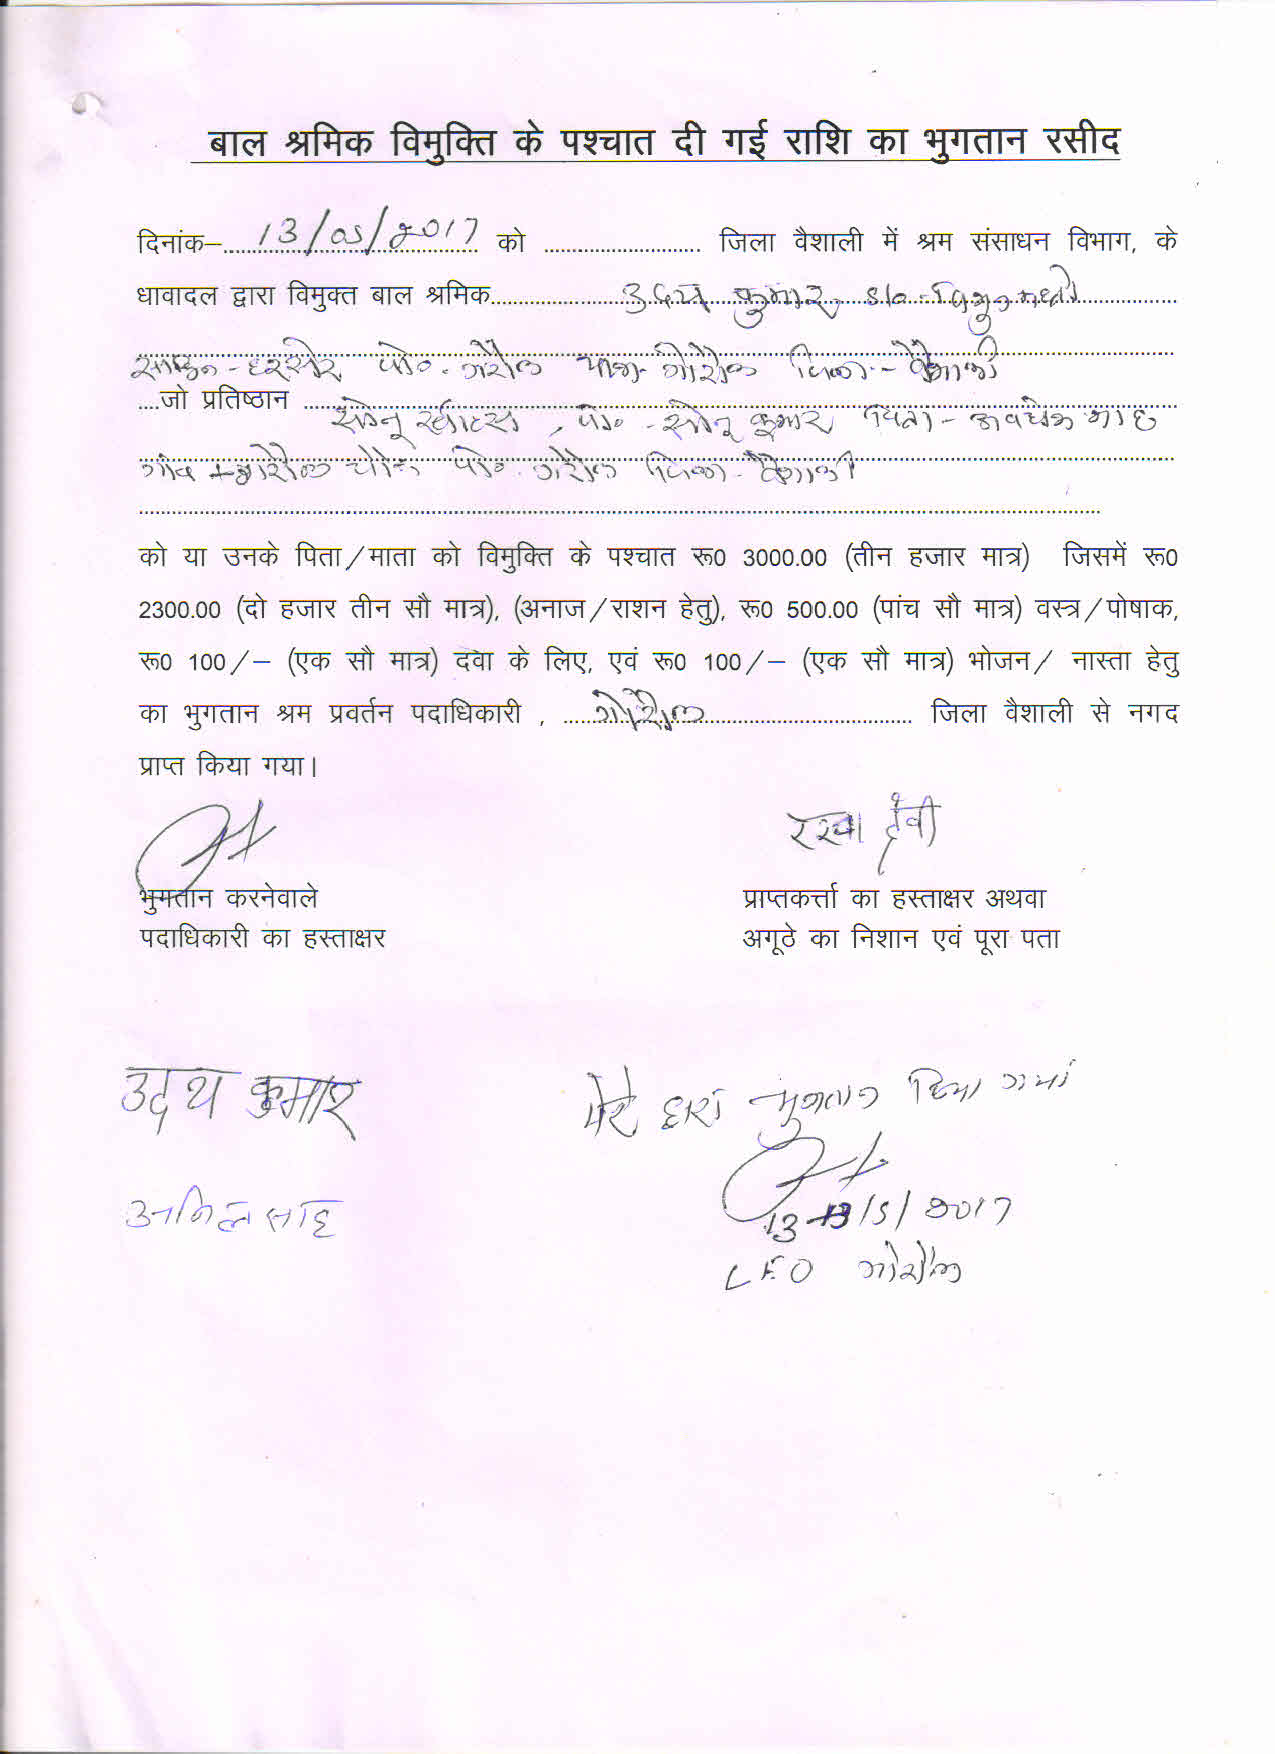 बाल श्रमिक विमुक्ति के पश्चात दी गई राशि का भुगतान रसीद
दिनांक–....13/05/2017.... को ........................ जिला वैशाली में श्रम संसाधन विभाग, के
धावादल द्वारा विमुक्त बाल श्रमिक.................... उदय कुमार, s/o -
पो०- गोरौल थाना- गोरौल जिला - वैशाली
....जो प्रतिष्ठान .... सोनू स्वीट्स, पो० - सोनू कुमार पिता - अवधेश साह
गोरौल चौक पो०- गोरौल जिला- वैशाली
को या उनके पिता/माता को विमुक्ति के पश्चात रू0 3000.00 (तीन हजार मात्र) जिसमें रू0
2300.00 (दो हजार तीन सौ मात्र), (अनाज/राशन हेतु), रू0 500.00 (पांच सौ मात्र) वस्त्र/पोषाक,
रू0 100/– (एक सौ मात्र) दवा के लिए, एवं रू0 100/– (एक सौ मात्र) भोजन/ नास्ता हेतु
का भुगतान श्रम प्रवर्तन पदाधिकारी , ....गोरौल.................... जिला वैशाली से नगद
प्राप्त किया गया।
रेखा देवी
भुगतान करनेवाले प्राप्तकर्त्ता का हस्ताक्षर अथवा
पदाधिकारी का हस्ताक्षर अगूठे का निशान एवं पूरा पता
उदय कुमार
मेरे द्वारा भुगतान किया गया
अनिल साह
13/5/2017
LEO गोरौल